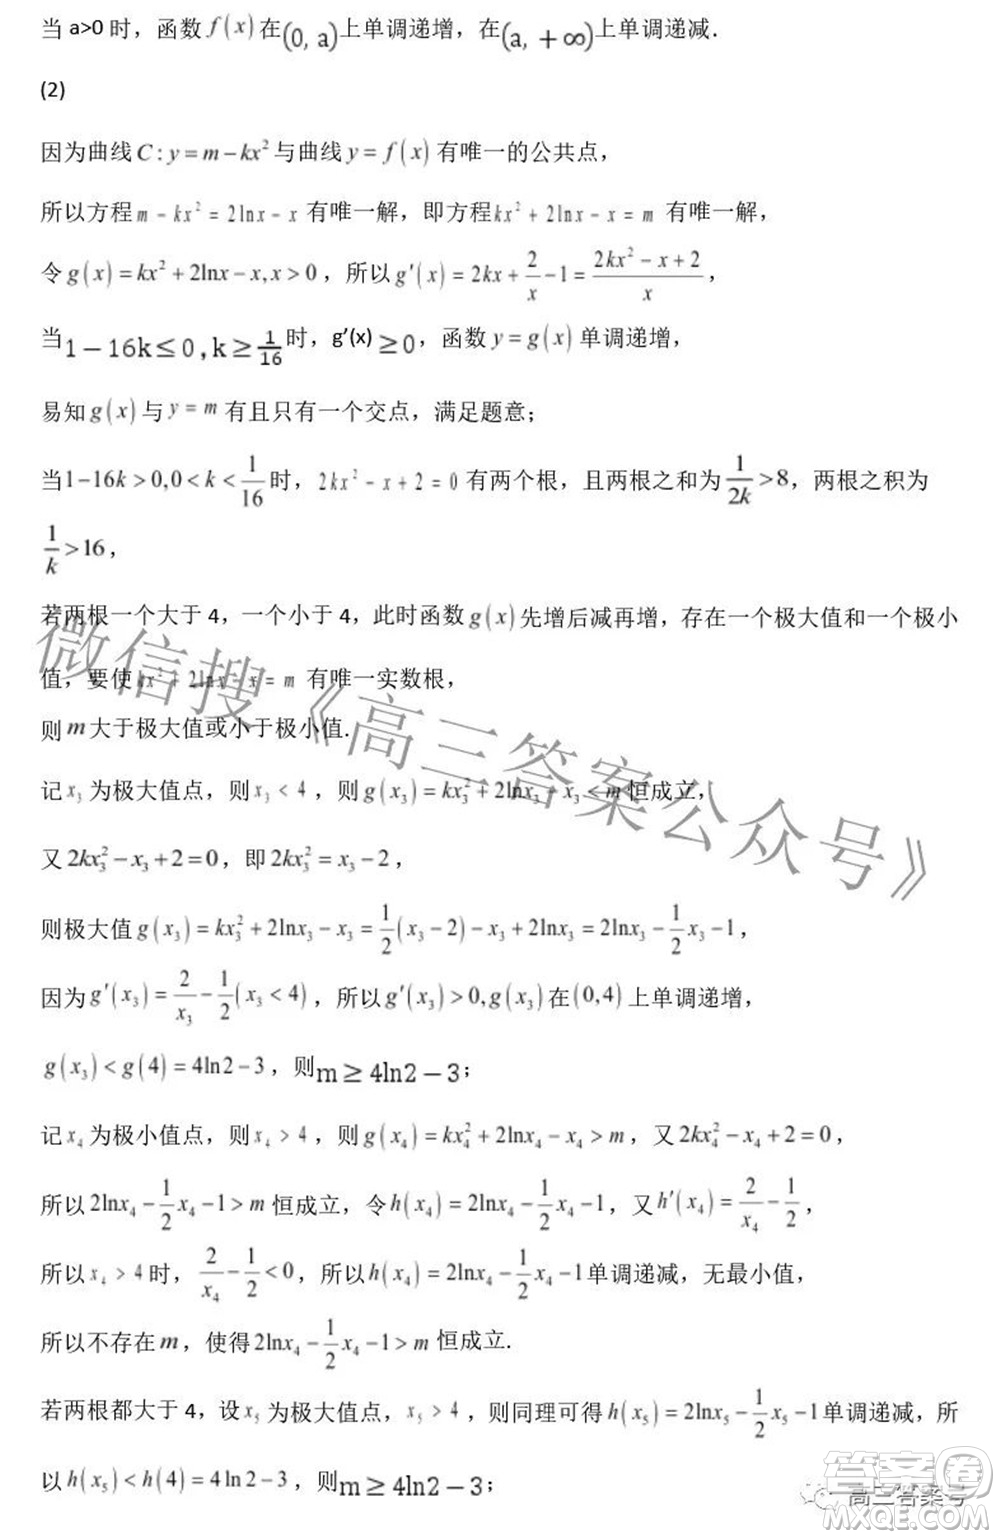 当 a>0 时，函数 f(x) 在(0, a)上单调递增，在(a, +∞)上单调递减.
(2)
因为曲线 C: y = m − kx² 与曲线 y = f(x) 有唯一的公共点，
所以方程 m − kx² = 2lnx − x 有唯一解，即方程 kx² + 2lnx − x = m 有唯一解，
令 g(x) = kx² + 2lnx − x, x > 0，所以 g′(x) = 2kx + 2/x − 1 = (2kx² − x + 2)/x，
当 1 − 16k ≤ 0, k ≥ 1/16 时，g′(x) ≥ 0，函数 y = g(x) 单调递增，
易知 g(x) 与 y = m 有且只有一个交点，满足题意；
当 1−16k > 0, 0 < k < 1/16 时，2kx² − x + 2 = 0 有两个根，且两根之和为 1/(2k) > 8，两根之积为
1/k > 16，
若两根一个大于 4，一个小于 4，此时函数 g(x) 先增后减再增，存在一个极大值和一个极小
值，要使 kx² + 2lnx − x = m 有唯一实数根，
则 m 大于极大值或小于极小值.
记 x₃ 为极大值点，则 x₃ < 4，则 g(x₃) = kx₃² + 2lnx₃ − x₃ < m 恒成立，
又 2kx₃² − x₃ + 2 = 0，即 2kx₃² = x₃ − 2，
则极大值 g(x₃) = kx₃² + 2lnx₃ − x₃ = 1/2(x₃ − 2) − x₃ + 2lnx₃ = 2lnx₃ − 1/2 x₃ − 1，
因为 g′(x₃) = 2/x₃ − 1/2 (x₃ < 4)，所以 g′(x₃) > 0, g(x₃) 在 (0,4) 上单调递增，
g(x₃) < g(4) = 4ln2 − 3，则 m ≥ 4ln2 − 3；
记 x₄ 为极小值点，则 x₄ > 4，则 g(x₄) = kx₄² + 2lnx₄ − x₄ > m，又 2kx₄² − x₄ + 2 = 0，
所以 2lnx₄ − 1/2 x₄ − 1 > m 恒成立，令 h(x₄) = 2lnx₄ − 1/2 x₄ − 1，又 h′(x₄) = 2/x₄ − 1/2，
所以 x₄ > 4 时，2/x₄ − 1/2 < 0，所以 h(x₄) = 2lnx₄ − 1/2 x₄ − 1 单调递减，无最小值，
所以不存在 m，使得 2lnx₄ − 1/2 x₄ − 1 > m 恒成立.
若两根都大于 4，设 x₅ 为极大值点，x₅ > 4，则同理可得 h(x₅) = 2lnx₅ − 1/2 x₅ − 1 单调递减，所
以 h(x₅) < h(4) = 4ln2 − 3，则 m ≥ 4ln2 − 3；
微信搜《高三答案公众号》
高三答案号
答案圈
MXQE.COM